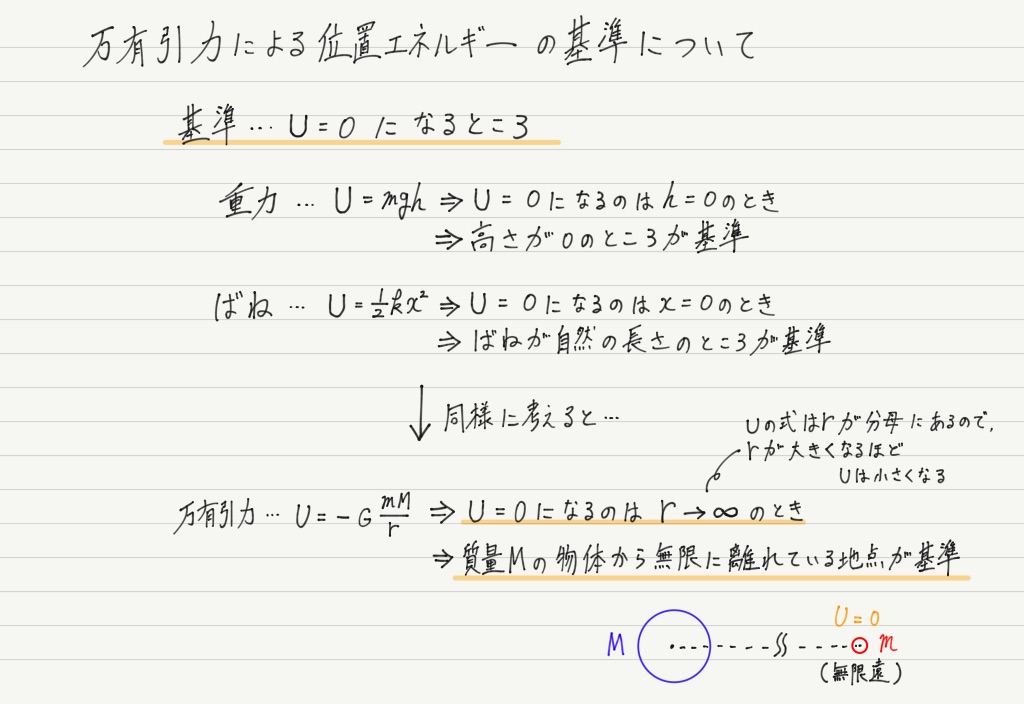 万有引力による位置エネルギーの基準について
基準…U=0になるところ
重力…U=mgh⇒U=0になるのはh=0のとき
⇒高さが0のところが基準
ばね…U=½kx²⇒U=0になるのはx=0のとき
⇒ばねが自然の長さのところが基準
↓同様に考えると…
Uの式はrが分母にあるので,
rが大きくなるほど
Uは小さくなる
万有引力…U=-G mM/r ⇒U=0になるのはr→∞のとき
⇒質量Mの物体から無限に離れている地点が基準
U=0
M m
(無限遠)